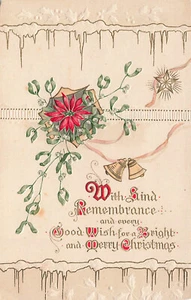 With Kind
Remembrance
and every
Good Wish for a Bright
and Merry Christmas.